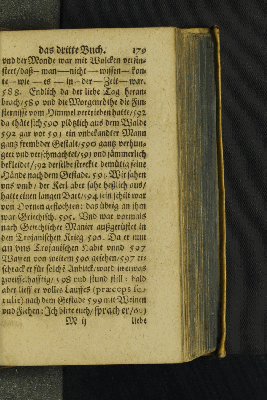 das dritte Buch. 179
und der Monde war mit Wolcken verfin-
stert/ daß — man — nicht — wissen — kon-
te — wie — es — in — der — Zeit — war.
588. Endlich da der liebe Tag heran-
brach/ 589 und die Morgenröthe die Fin-
sternisse vom Himmel vertrieben hatte/ 592
da thät sich 590 plötzlich aus dem Walde
592 gar vor 591 ein unbekandter Mann
gantz frembder Gestalt/ 590 gantz verhun-
gert und verschmachtet/ 591 und jämmerlich
bekleidet/ 592 derselbe streckte demütig seine
Hände nach dem Gestade. 593. Wir sahen
uns umb/ der Kerl aber sahe heßlich aus/
hatte einen langen Bart/ 594 sein
von Dornen geflochten: das übrig an ihm
war Griechisch. 595. Und war vormals
nach Griechischer Manier außgerüstet in
den Trojanischen Krieg 596. Da er nun
an uns Trojanischen Habit unnd 597
Waffen von weitem 596 gesehen/ 597 er-
schrack er für solche Anblick/ ward in etwas
598 und stund still: bald
aber lieff er volles Lauffes (præceps se
tulit) nach dem Gestade 599 mit Weinen
und Flehen: Ich bitte euch/ sprach er/
M ij liebe